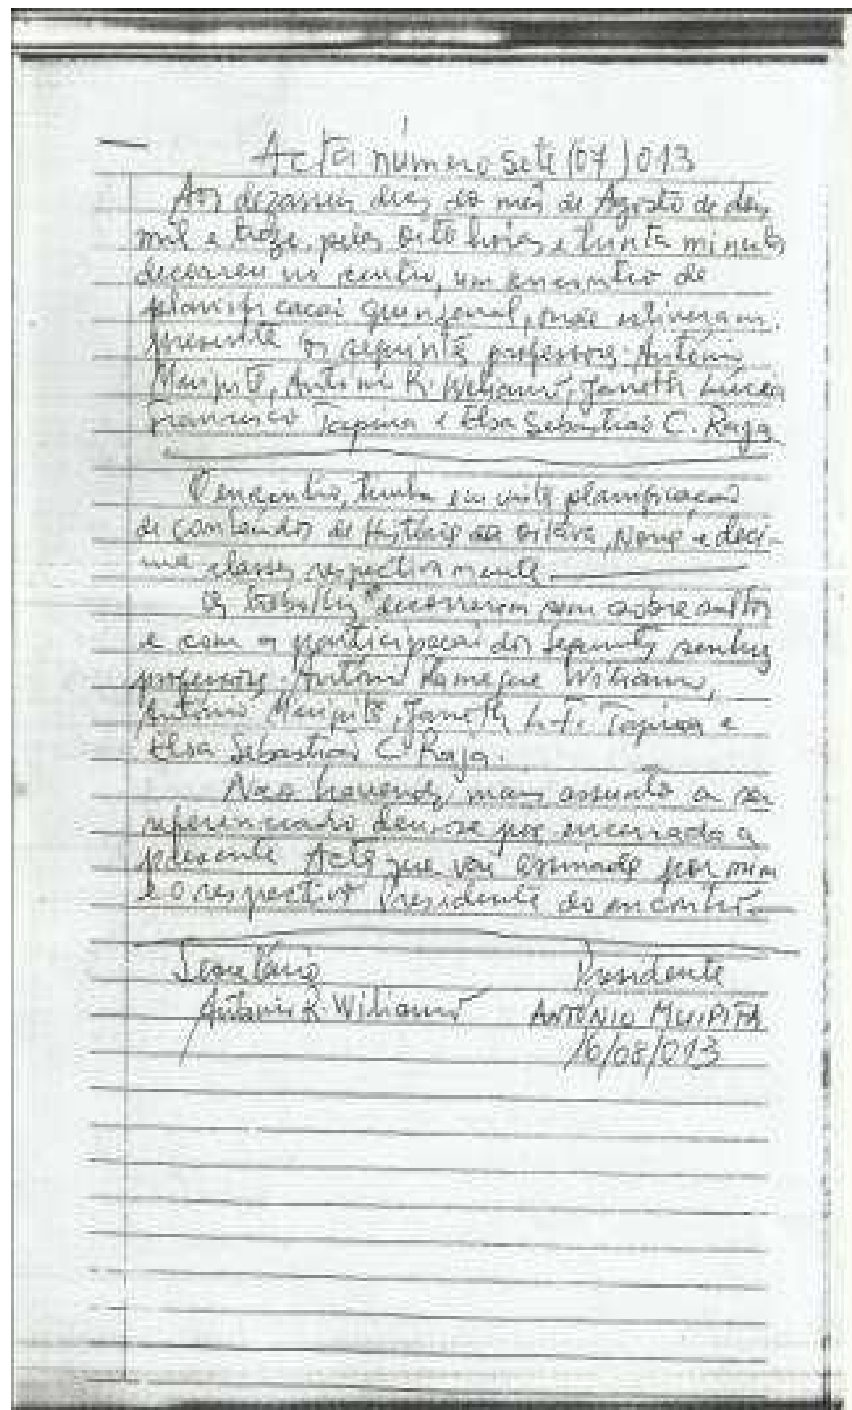 Acta número sete (07) 013
Aos dezasseis dias do mês de Agosto de dois
mil e treze, pelas oito horas e trinta minutos
decorreu no centro, um encontro de
planificacai quinzenal, onde estiveram
presente os seguinte professores: António
Muipita, António R. Williamo, Janeth Lúcia
Francisco Tapiua e Elsa Sebastiao C. Raja
O encontro, tinha em vista planificaçao
de conteúdos de História da oitava, Nona e deci-
ma classes respectivamente.
Os trabalhos decorreram sem sobressaltos
e com a participacai dos Seguintes senhores
professores: António Williamo,
António Muipita, Janeth L. F. Tapiua e
Elsa Sebastiao C. Raja.
Nao havendo mais assunto a ser
referenciado deu-se por encerrada a
presente Acta que vai assinada por mim
e o respectivo Presidente do encontro.
Secretário Presidente
António R. Williamo ANTÓNIO MUIPITA
16/08/013